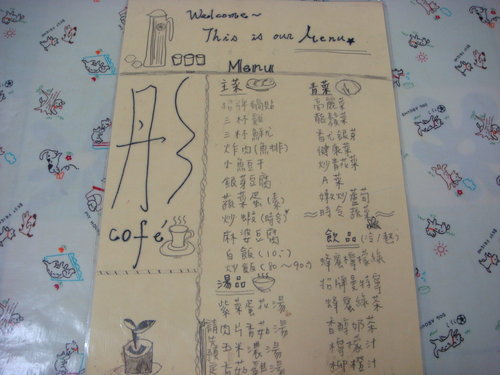 Welcome~
This is our Menu
Menu
彤
café
主菜
招牌鍋貼
三杯雞
三杯魷魚
炸肉(魚排)
小魚豆干
銀芽豆腐
蔬菜蛋(素)
炒蝦(時令)
麻婆豆腐
白飯(10.)
炒飯(80~90.)
湯品
紫菜蛋花湯
肉片香菇湯
玉米濃湯
香菇雞湯
青菜
高麗菜
龍鬚菜
香化銀菜
健康菜
炒青花菜
A菜
嫩炒蘆筍
~時令蔬菜~
飲品(冷/熱)
蜂蜜檸檬綠
招牌曼特寧
蜂蜜綠茶
香醇奶茶
檸檬汁
柳橙汁